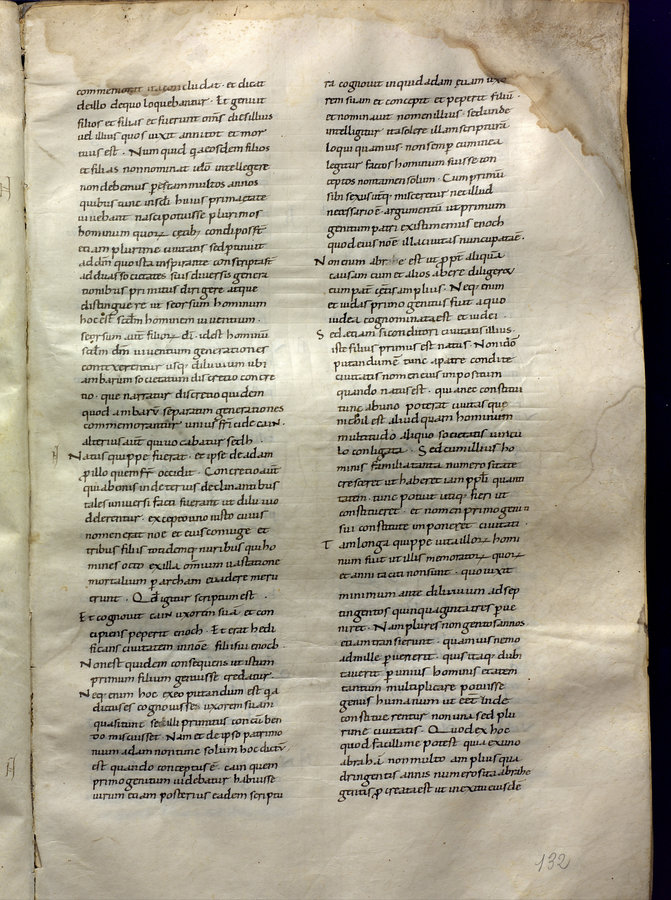 commemorat ita concludat · et dicat
de illo de quo loquebantur · Et genuit
filios et filias et fuerunt om̄s dies illius
vel illius quos vixit anni tot et mor
tuus est · Num quid q̄a eosdem filios
et filias non nominat ideo intellegere
non debemus ꝑ tam multos annos
quibus tunc in sęcli huius prima ętate
vivebant nasci potuisse plurimos
hominum quorꝫ cętibꝫ condi poss̄t
etiam plurime civitates sed ꝑtinuit
ad dm̄ quo ista inspirante conscripta st̄
ad duas societates suis diversis genera
tionibus primitus dirigere atque
distinguere ut seorsum hominum
hoc est scdm̄ hominem viventium ·
seorsum aut̄ filiorꝫ di · id est hominū
scdm̄ dm̄ viventum generationes
contexerentur usqꝫ diluvium ubi
ambarum societatum discretio concre
tio · que narratur discretio quidem
quod ambarū separatim generationes
commemorantur unius fr̄icide cain ·
alterius aut̄ qui vocabatur sedh ·
Natus quippe fuerat · et ipse de adam
ꝑ illo quem fr̄ occidit · Concretio aut̄
quia bonis in deterius declinantibus
tales universi facti fuerant ut diluvio
delerentur · excepto uno iusto cuius
nomen erat noe et eius coniuge et
tribus filiis totidemqꝫ nuribus qui ho
mines octo ex illa omnium vastatione
mortalium ꝑ archam evadere meru
erunt · Qd̄ igitur scriptum est ·
Et cognovit cain uxorem suā et con
cipiens peperit enoch · Et erat hedi
ficans civitatem in noē filii sui enoch ·
Non est quidem consequens ut istum
primum filium genuisse credatur ·
Neqꝫ enim hoc ex eo putandum est q̄a
dictus es cognovisse uxorem suam
quasi tunc se illi primitus concūben
do miscuisset · Nam et de ipso patre omo
nium adam non tunc solum hoc dictū
est quando conceptus ē · cain quem
primogenitum videbatur habuisse
virum etiam posterius eadem scriptu
ra cognovit inquid adam evam uxo
rem suam et concepit et peperit filiū ·
et nominavit nomen illius · sed unde
intellegitur ita solere illam scripturā
loqui quamvis · non semꝑ cum in ea
legitur factos hominum fuisse con
ceptos non tamen solum · Cum primū
sibi sexus utqꝫ misceretur nec illud
necessario ē argumentū ut primum
genitum patri existimemus enoch
quod eius noē illa civitas nuncupata ē ·
Non enim ab re est ut ꝓpt̄ aliquā
causam cum et alios abere diligeret
eum pat̄ cęteris amplius · Neqꝫ enim
et iudas primogenitus fuit a quo
iudea cognominata est et iudei ·
Sed etiam si conditori civitatis illius ·
iste filius primus est natus · Non ido
putandum ē tunc a patre condite
civitatis nomen eius impositum
quando natus est · quia nec constitui
tunc ab uno poterat civitas que
nichil est aliud quam hominum
multitudo aliquo societatis vincu
lo conligata · Sed cum illius ho
minis familia tanta numerositate
cresceret ut haberet iam ppl̄i quanti
tatem · tunc potuit utiqꝫ fieri ut
constitueret · et nomen primogenito
sui constitute imponeret civitati ·
Tam longa quippe vita illorꝫ homi
num fuit ut illis memoratorꝫ quorꝫ
et anni tacati non sunt · quo vixit
minimum ante diluvium ad sep
tingentos quinquaginta tres ꝑve
niret · Nam plures nongentos annos
etiam transierunt · quamvis nemo
ad mille ꝑvenerit · quis itaqꝫ dubi
taverit ꝑ unius hominis etatem
tantum multiplicare potuisse
genus humanum ut eēt unde
constituerentur non una sed plu
rime civitates · Quod ex hoc
quod facillime potest quia ex uno
abrahā non multo amplius qua
dringentis annis numerosita abrahę
gentis ꝓcreata est ut in exitu eius dē
132